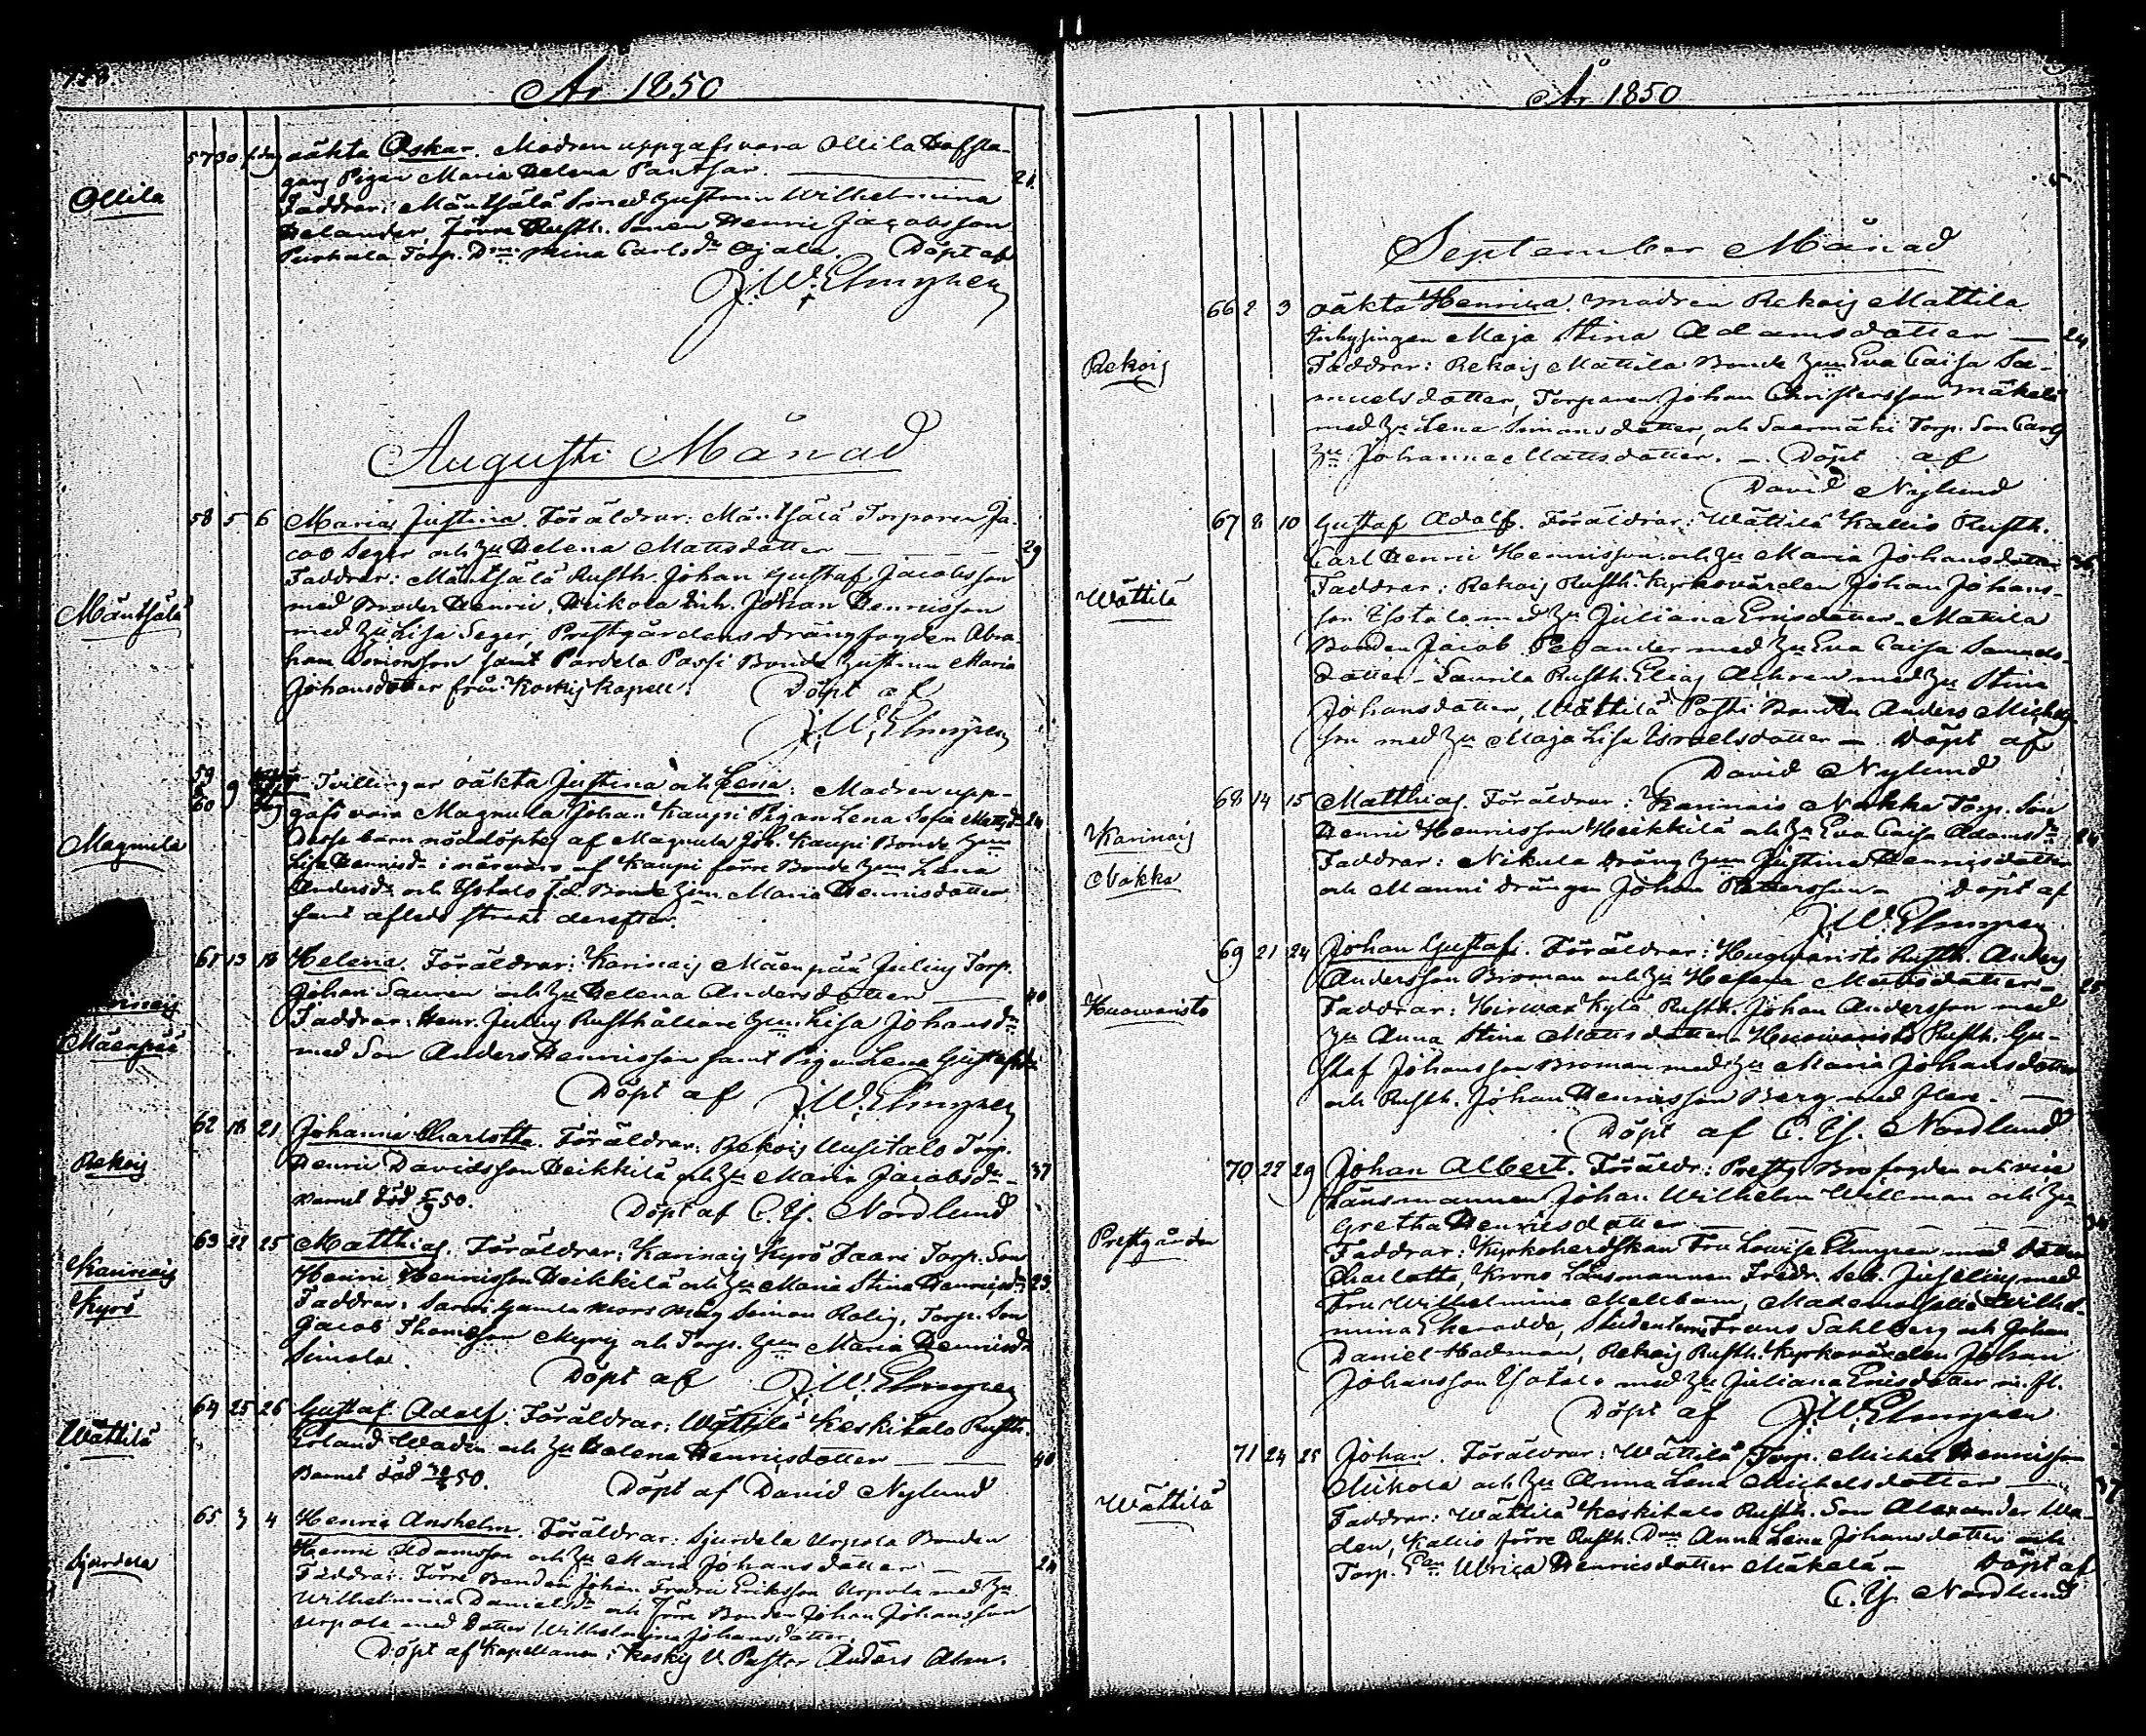 År 1850
Ollila
57 30 s. dag oäkta Oskar. Modren uppgafs vara Ollila
Pigan Maria Helena Panthar. 21
Faddrar: Mäntsälä Smed hustrun Wilhelmina
Helander, förre Rusth. Sonen Henric Jacobsson
Torp. Dn Mina Carlsdr Ojala. Döpt af
J. W. Elmgren
Augusti Månad
Mäntsälä
58 5 6 Maria Justina. Föräldrar: Mäntsälä Torparen Ja-
cob Seger och hu Helena Mattsdotter 29
Faddrar: Mäntsälä Rusth. Johan Gustaf Jacobsson
med Broder Henric, Inh. Johan Henricsson
med hu Lisa Seger, Prestgårdens drängfogden Abra-
ham Simonsson samt Pardela Passi Bonde hustrun Maria
Johansdotter från Koskis Kapell. Döpt af
J. W. Elmgren
Magnula
59 & 60 9 Tvillingar oäkta Justina och Lena. Modren upp-
gafs vara Magnula Johan Kaupi Pigan Lena Sofia Mattsdr 24
Desse barn nöddöptes af Magnula Joh. Kaupi Bonde hun
Lisa Henricsdr i närvaro af Kaupi förre Bonde hun Lena
Andersdr och Ystalo f.d. Bonde hun Maria Henricsdotter
samt afledo strax derefter.
Mäenpää
61 13 18 Helena. Föräldrar: Karinais Mäenpää Julius Torp.
Johan Sauren och hu Helena Andersdotter 40
Faddrar: Henr. Julius Rusthållare hun Lisa Johansdr
med Son Anders Henricsson samt Pigan Lena Gustafsdr
Döpt af J. W. Elmgren
Rekois
62 18 21 Johanna Charlotta. Föräldrar: Rekois Uusitalo Torp.
Henric Davidsson Heikkilä och hu Maria Jacobsdr 37
Barnet död 5/9 50. Döpt af C. Y. Nordlund
Karinais
Kyrö
63 22 25 Matthias. Föräldrar: Karinais Kyrö Jaari Torp. Son
Henric Henricsson Heikkilä och hu Maria Stina Henricsdr 23
Faddrar: gamla mors måg Simon Rolig, Torp. Son
Jacob Thomasson Myry och Torp. hun Maria Henricsdr
Simola. Döpt af J. W. Elmgren
Wättilä
64 25 26 Gustaf Adolf. Föräldrar: Wättilä Keskitalo Rusth.
Erland Waden och hu Helena Henricsdotter 40
Barnet död 50. Döpt af David Nylund
Sjurdela
65 3 4 Henric Anshelm. Föräldrar: Sjurdela Urpola Bonden
Henric Adamsson och hu Maria Johansdotter 24
Faddrar: Förre Bonden Johan Fredric Eriksson Urpola med hu
Wilhelmina Danielsdr och förre Bonden Johan Johansson
Urpola med dotter Wilhelmina Johansdotter.
Döpt af Kapellanen i Koskis V. Pastor Anders Alan.
År 1850
September Månad
Rekois
66 2 3 oäkta Henrica. Modren Rekois Mattila
Inhysingen Maja Stina Adamsdotter 24
Faddrar: Rekois Mattila Bonde hun Eva Caisa Sa-
muelsdotter, Torparen Johan Christersson Mäkelä
med hu Lena Simonsdotter, och Saarmäki Torp. Son Carls
hu Johanna Mattsdotter. Döpt af
David Nylund
Wättilä
67 8 10 Gustaf Adolf. Föräldrar: Wättilä Kallio Rusth.
Carl Henric Henricsson och hu Maria Johansdotter 36
Faddrar: Rekois Rusth. Kyrkovärden Johan Johans-
son Ystalo med hu Juliana Ericsdotter, Mattila
Bonden Jacob Pelander med hu Eva Caisa Samuels-
dotter, Taurila Rusth. Elias Achren med hu Stina
Johansdotter, Wättilä Passi Bonden Anders Michels-
son med hu Maja Lisa Israelsdotter. Döpt af
David Nylund
Karinais
Nokka
68 14 15 Matthias. Föräldrar: Karinais Nokka Torp. Son
Henric Henricsson Heikkilä och hu Eva Caisa Adamsdr 24
Faddrar: Nikula Dräng hun Justina Henricsdotter
och Manni drängen Johan Pettersson. Döpt af
J. W. Elmgren
Huowaristo
69 21 24 Johan Gustaf. Föräldrar: Huowaristo Rusth. Anders
Andersson Broman och hu Helena Mattsdotter 25
Faddrar: Hirwas Kylä Rusth. Johan Andersson med
hu Anna Stina Mattsdotter, Huowaristo Rusth. Gu-
staf Johansson Broman med hu Maria Johansdotter
och Rusth. Johan Henricsson Berg med flere.
Döpt af C. Y. Nordlund
Prestgården
70 22 29 Johan Albert. Föräldr: Prestg. Brofogden och vice
Länsmannen Johan Wilhelm Willman och hu
Gretha Henricsdotter
Faddrar: Kyrkoherdskan Fru Lovisa Elmgren med dotter
Charlotta, Krono Länsmannen Fredr. Seb. Juselius med
Fru Wilhelmina Mellbom, Mademoiselle Wilhel-
mina Ekeroddo, Studenterne Frans Sahlberg och Johan
Daniel Hedman, Rekois Rusth. Kyrkovärden Johan
Johansson Ystalo med hu Juliana Ericsdotter m. fl.
Döpt af J. W. Elmgren
Wättilä
71 24 25 Johan. Föräldrar: Wättilä Torp. Michel Henricsson
Mikola och hu Anna Lena Michelsdotter 37
Faddrar: Wättilä Keskitalo Rusth. Son Alexander Wa-
den, Kallio förre Rusth. Dn Anna Lena Johansdotter och
Torp. Ulrica Henricsdotter Mäkelä. Döpt af
C. Y. Nordlund